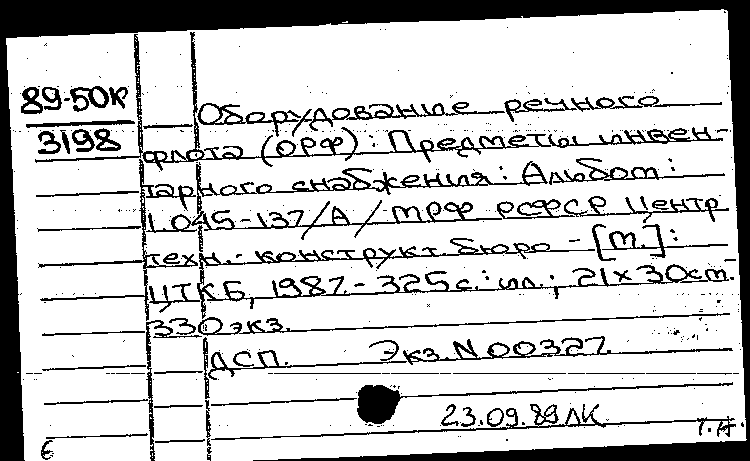 89-50К
3198
Оборудование речного
флота (ОРФ): Предметы инвен-
тарного снабжения: Альбом:
1.045-137/А/ МРФ РСФСР Центр
техн.-конструкт. бюро - [М.]:
ЦТКБ, 1987. - 325 с.: ил.; 21×30 см.
330 экз.
ДСП. Экз. N 00327.
23.09.89 ЛК
6